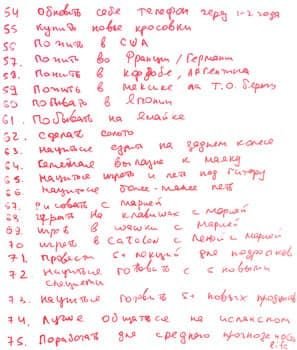 54 Обновить себе телефон через 1-2 года
55 купить новые кросовки
56 Пожить в США
57. Пожить во Франции / Германии
58. Пожить в Кордобе, Аргентина
59 Пожить в Мексике на Т.О. берегу
60 Побывать в Японии
61. Побывать на Ямайке
62. Сделать сальто
63. научиться ездить на заднем колесе
64. Семейная вылазка к маяку
65. Научиться играть и петь под гитару
66. научиться более-менее петь
67. Рисовать с Марией
68 играть на клавишах с Марией
69 игра в шашки с Марией
70 играть в Catolon с Леной и Марией
71. Провести 5+ лекций для подростков
72 Научиться готовить с 5 новыми специями
73. научиться готовить 5+ новых продуктов
74. Лучше общаться на испанском
75. Поработать для среднего прогноза